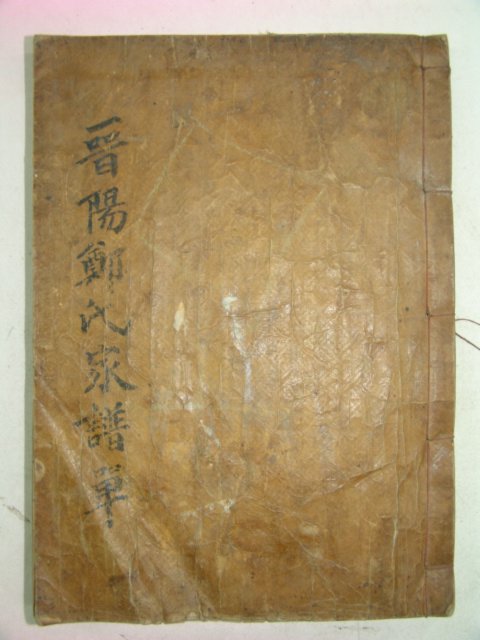 晋陽鄭氏家譜單